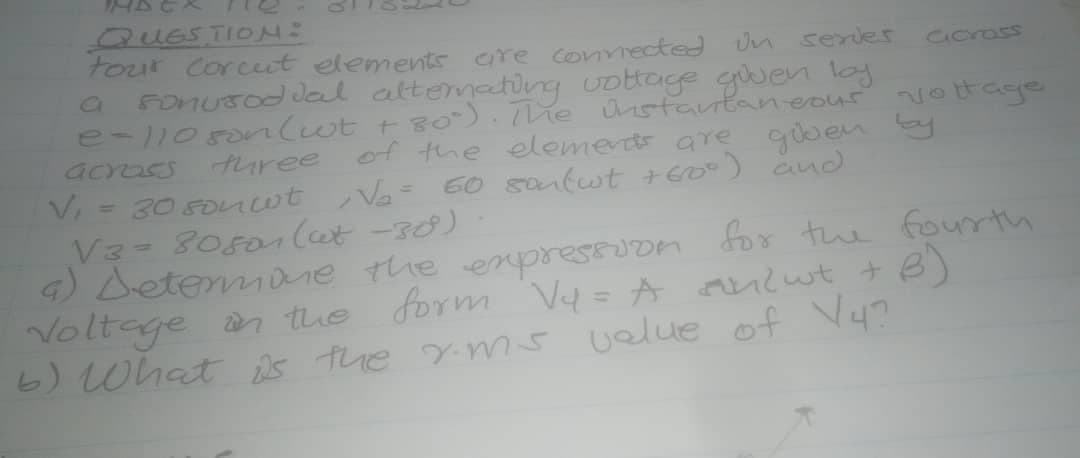 QUESTION:
four corcut elements are connected in series across
a sonusoddal alternating voltage given by
e = 110 son(wt + 30°). The instantaneous voltage
across three of the elements are given by
V1 = 30 son wt , V2 = 60 son(wt + 60°) and
V3 = 80 son (wt - 30°).
a) Determine the expression for the fourth
Voltage in the form V4 = A sin(wt + B)
b) What is the r.m.s value of V4?